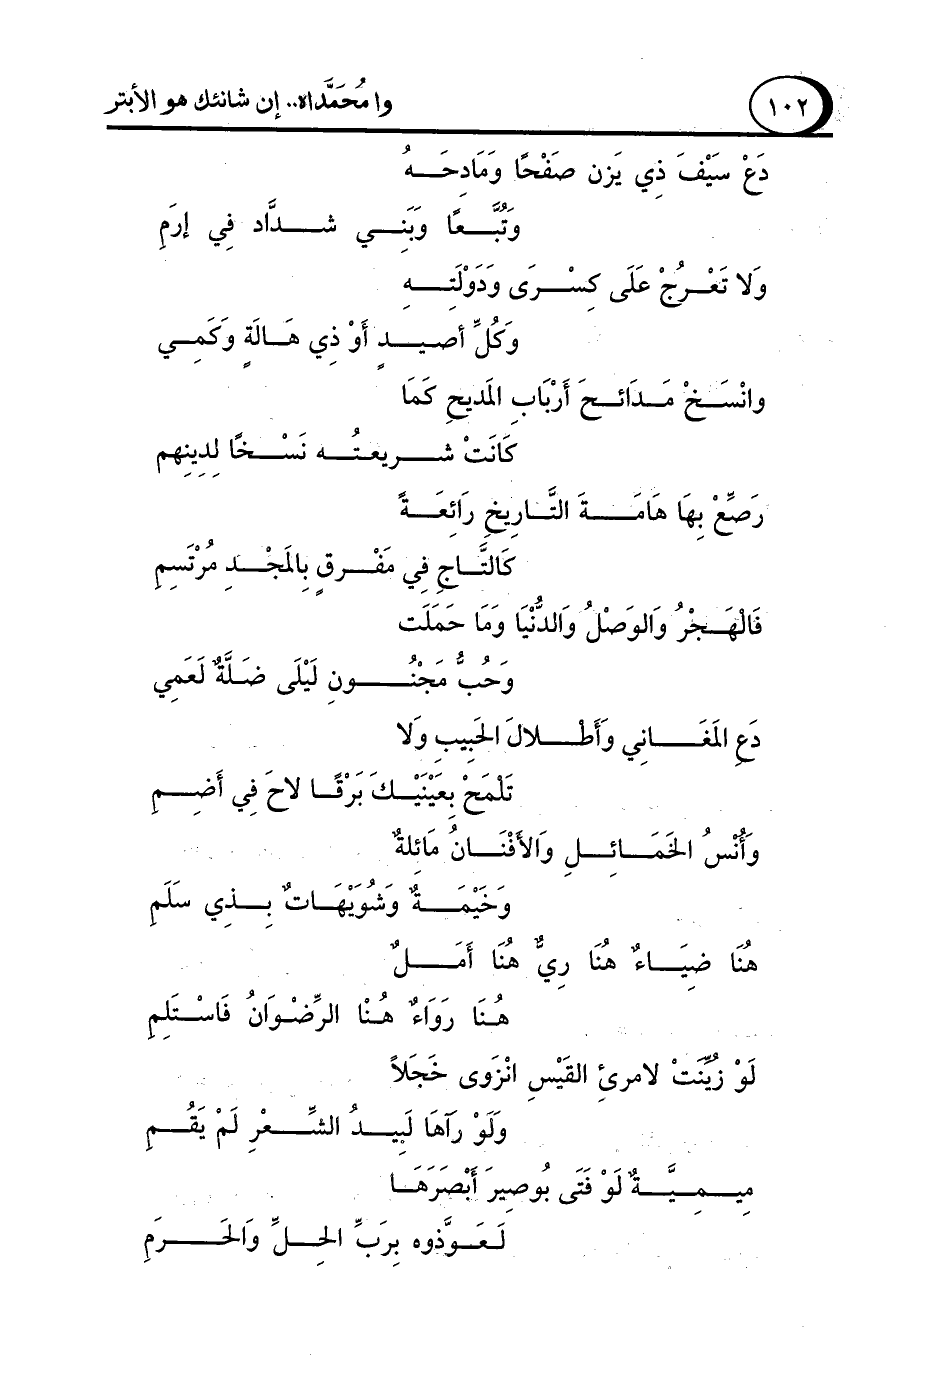 وا مُحَمَّداه.. إن شانئك هو الأبتر
١٠٢
دَعْ سَيْفَ ذِي يَزن صَفْحًا وَمَادِحَهُ
وَتُبَّعًا وَبَنِي شدَّاد فِي إرَمِ
وَلا تَعْرُجْ عَلَى كِسْرَى وَدَوْلَتِهِ
وَكُلِّ أصيدٍ أَوْ ذِي هَالَةٍ وَكَمِي
وانْسَخْ مَدَائحَ أَرْبَابِ المَديحِ كَمَا
كَانَتْ شريعتُه نَسْخًا لِدِينِهم
رَصِّعْ بِهَا هَامَةَ التَّاريخِ رَائِعَةً
كَالتَّاجِ فِي مَفْرقٍ بِالمَجْدِ مُرْتَسِمِ
فَالْهَجْرُ وَالوَصْلُ وَالدُّنْيَا وَمَا حَمَلَت
وَحُبُّ مَجْنُونِ لَيْلَى ضَلَّةٌ لَعَمِي
دَعِ المَغَانِي وَأَطْلالَ الحَبِيبِ وَلا
تَلْمَحْ بِعَيْنَيْكَ بَرْقًا لاحَ فِي أَضِمِ
وَأُنْسُ الخَمَائِلِ وَالأَفْنَانُ مَائِلةٌ
وَخَيْمَةٌ وَشُوَيْهَاتٌ بِذِي سَلَمِ
هُنَا ضِيَاءٌ هُنَا رِيٌّ هُنَا أَمَلٌ
هُنَا رَوَاءٌ هُنْا الرِّضْوَانُ فَاسْتَلِمِ
لَوْ زُيِّنَتْ لامرئِ القَيْسِ انْزَوى خَجَلاً
وَلَوْ رَآهَا لَبِيدُ الشِّعْرِ لَمْ يَقُمِ
مِيمِيَّةٌ لَوْ فَتَى بُوصِيرَ أَبْصَرَهَا
لَعَوَّذُوه بِرَبِّ الحِلِّ وَالحَرَمِ